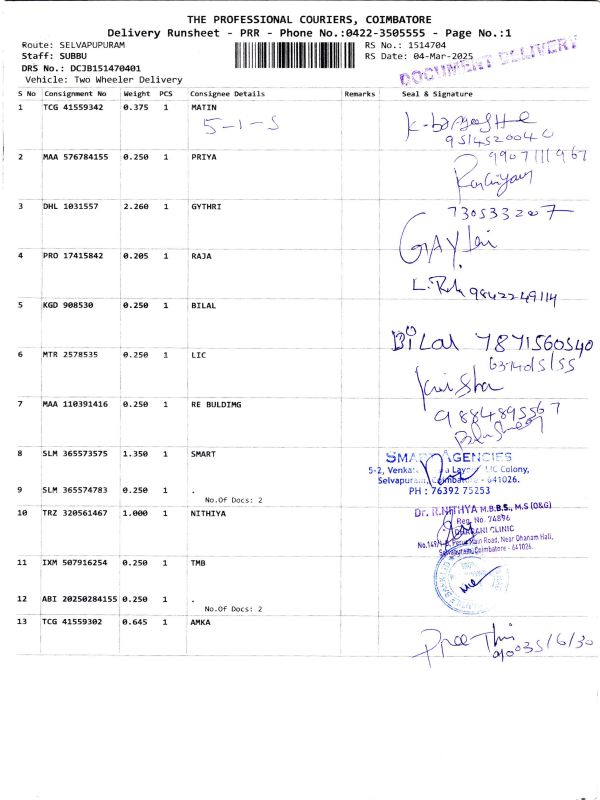 THE PROFESSIONAL COURIERS, COIMBATORE
Delivery Runsheet - PRR - Phone No.:0422-3505555 - Page No.:1
Route: SELVAPUPURAM RS No.: 1514704
Staff: SUBBU RS Date: 04-Mar-2025
DOCUMENT DELIVERY
DRS No.: DCJB151470401
Vehicle: Two Wheeler Delivery
S No Consignment No Weight PCS Consignee Details Remarks Seal & Signature
1 TCG 41559342 0.375 1 MATIN
5-1-5
9514520040
2 MAA 576784155 0.250 1 PRIYA
9907111967
3 DHL 1031557 2.260 1 GYTHRI
7305332007
4 PRO 17415842 0.205 1 RAJA
9842249114
5 KGD 908530 0.250 1 BILAL
BiLal 7871560540
6 MTR 2578535 0.250 1 LIC
7 MAA 110391416 0.250 1 RE BULDIMG
9884895567
8 SLM 365573575 1.350 1 SMART
SMART AGENCIES
5-2, Venkat Layout, LIC Colony,
Selvapuram, Coimbatore - 641026.
PH : 76392 75253
9 SLM 365574783 0.250 1 .
No.Of Docs: 2
10 TRZ 320561467 1.000 1 NITHIYA
Dr. R.NITHYA M.B.B.S., M.S (O&G)
Reg. No. 74896
CLINIC
Main Road, Near Dhanam Hall,
Selvapuram, Coimbatore - 641026.
11 IXM 507916254 0.250 1 TMB
12 ABI 20250284155 0.250 1 .
No.Of Docs: 2
13 TCG 41559302 0.645 1 AMKA